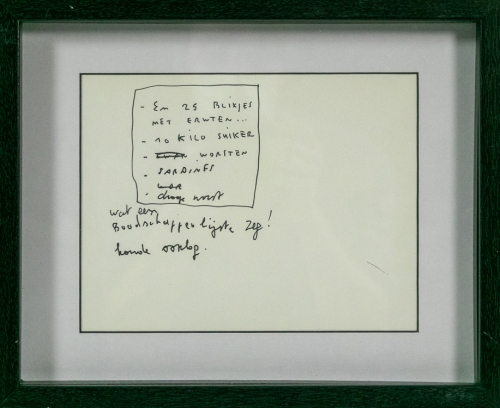 - EN 25 BLIKJES
MET ERWTEN...
- 10 KILO SUIKER
- WORSTEN
- SARDINES
- droge worst
wat een
Boodschappenlijstje zeg!
koude oorlog.